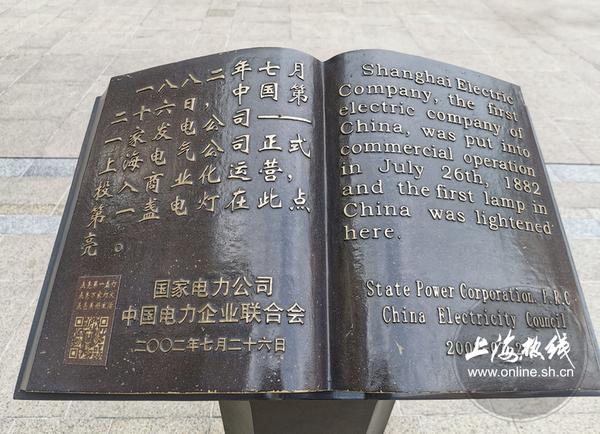 一八八二年七月
二十六日，中国第
一家发电公司——
上海电气公司正式
投入商业化运营，
第一盏电灯在此点
亮。
国家电力公司
中国电力企业联合会
二〇〇二年七月二十六日
Shanghai Electric
Company, the first
electric company of
China, was put into
commercial operation
in July 26th, 1882
and the first lamp in
China was lightened
here.
State Power Corporation, P.R.C
China Electricity Council
上海热线
www.online.sh.cn